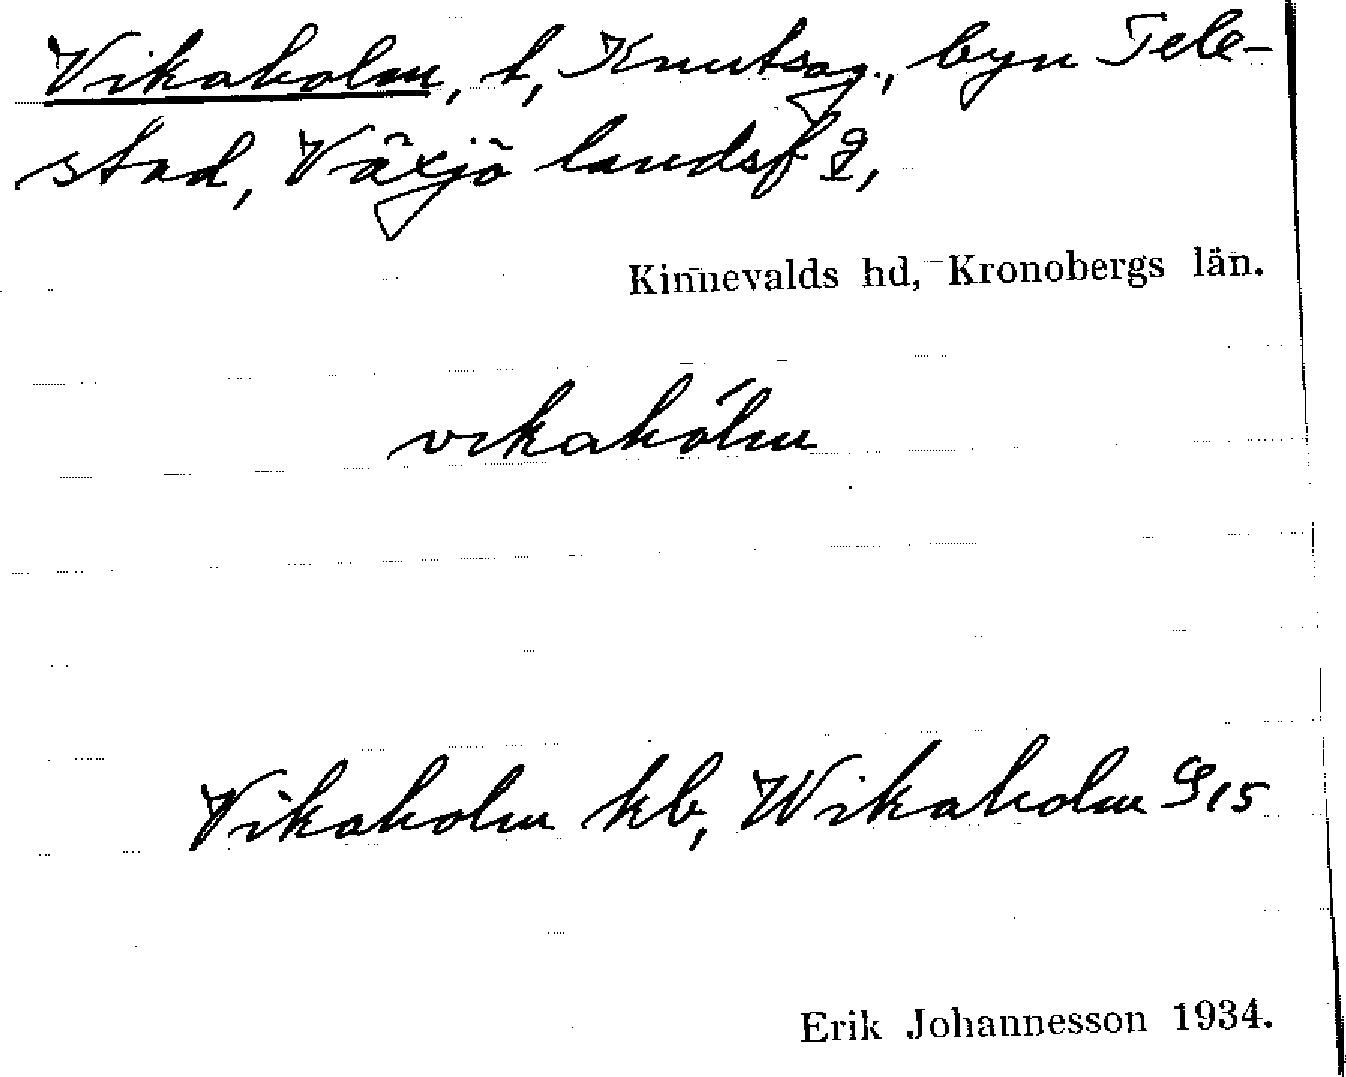 Vikaholm, t, Knutsg., byn Tele-
stad, Växjö landsf.,
Kinnevalds hd, Kronobergs län.
vikahólm
Vikaholm kb, Wikaholm G15
Erik Johannesson 1934.